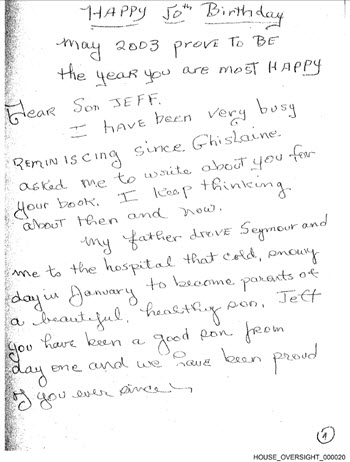 HAPPY 50th Birthday
may 2003 prove TO BE
the year you are most HAPPY
Dear Son JEFF.
I HAVE been very busy
REMINISCING since Ghislaine
asked me to write about you for
your book. I keep thinking
about then and now.
My father drove Seymour and
me to the hospital that cold, snowy
day in January to become parents of
a beautiful, healthy son. Jeff
you have been a good son from
day one and we have been proud
of you ever since.
1
HOUSE_OVERSIGHT_000020